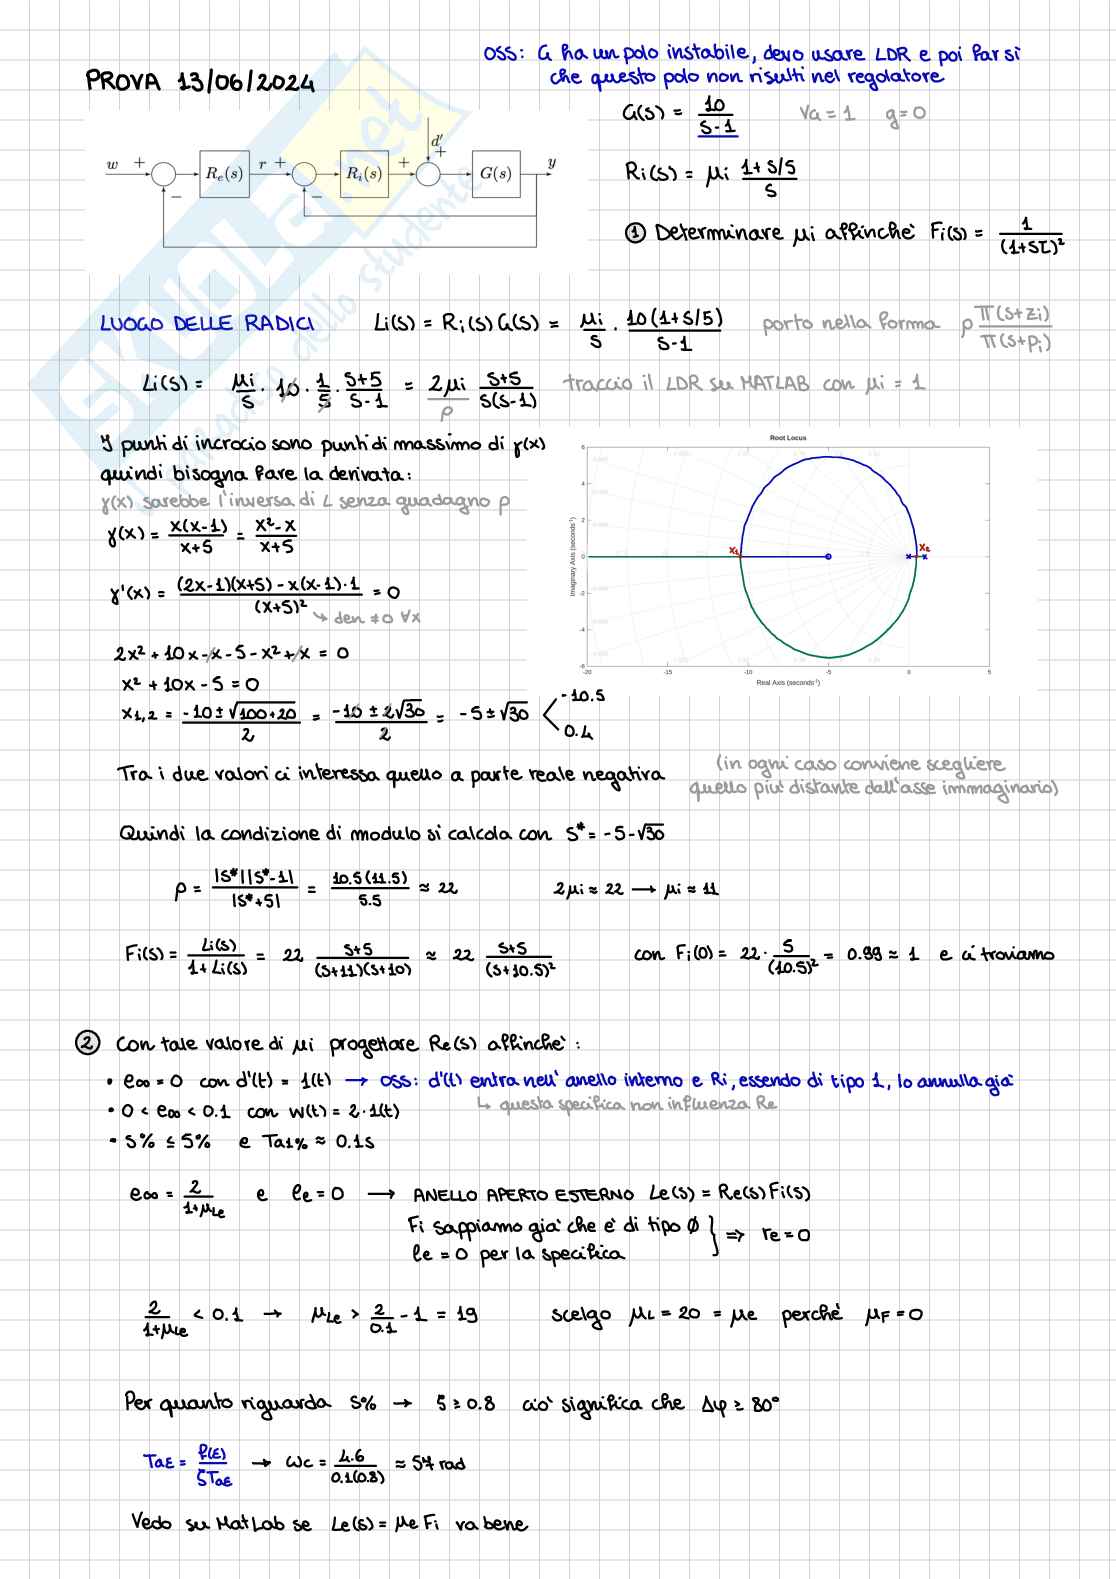 PROVA 13/06/2024
OSS: G ha un polo instabile, devo usare LDR e poi far sì
che questo polo non risulti nel regolatore
w + − Re(s) r + − Ri(s) + d' + G(s) y
G(s) = 10/(s-1) va = 1 g = 0
Ri(s) = μi (1+s/5)/s
① Determinare μi affinché Fi(s) = 1/(1+sτ)²
LUOGO DELLE RADICI Li(s) = Ri(s)G(s) = μi/s · 10(1+s/5)/(s-1) porto nella forma ρ π(s+zi)/π(s+pi)
Li(s) = μi/s · 10 · 1/5 · (s+5)/(s-1) = 2μi (s+5)/(s(s-1)) traccio il LDR su MATLAB con μi = 1
ρ
I punti di incrocio sono punti di massimo di γ(x)
quindi bisogna fare la derivata:
γ(x) sarebbe l'inversa di L senza guadagno ρ
γ(x) = x(x-1)/(x+5) = (x²-x)/(x+5)
γ'(x) = ((2x-1)(x+5) - x(x-1)·1)/(x+5)² = 0
↳ den ≠0 ∀x
2x² + 10x - x - 5 - x² + x = 0
x² + 10x - 5 = 0
x1,2 = (-10 ± √(100+20))/2 = (-10 ± 2√30)/2 = -5 ± √30 < -10.5
0.4
Root Locus
Imaginary Axis (seconds⁻¹)
6
4
2
0
-2
-4
-6
x1 x2
-20 -15 -10 -5 0 5
Real Axis (seconds⁻¹)
Tra i due valori ci interessa quello a parte reale negativa
(in ogni caso conviene scegliere
quello più distante dall'asse immmaginario)
Quindi la condizione di modulo si calcola con s* = -5-√30
ρ = |s*||s*-1|/|s*+5| = 10.5(11.5)/5.5 ≈ 22 2μi ≈ 22 → μi ≈ 11
Fi(s) = Li(s)/(1+Li(s)) = 22 (s+5)/((s+11)(s+10)) ≈ 22 (s+5)/(s+10.5)² con Fi(0) = 22 · 5/(10.5)² = 0.99 ≈ 1 e ci troviamo
② Con tale valore di μi progettare Re(s) affinché:
• e∞ = 0 con d'(t) = 1(t) → OSS: d'(t) entra nell'anello interno e Ri, essendo di tipo 1, lo annulla già
↳ questa specifica non influenza Re
• 0 < e∞ < 0.1 con w(t) = 2·1(t)
• S% ≤ 5% e Ta1% ≈ 0.1s
e∞ = 2/(1+μLe) e le = 0 → ANELLO APERTO ESTERNO Le(s) = Re(s)Fi(s)
Fi sappiamo già che è di tipo Ø
le = 0 per la specifica } ⇒ re = 0
2/(1+μLe) < 0.1 → μLe > 2/0.1 - 1 = 19 scelgo μL = 20 = μe perché μF = 0
Per quanto riguarda S% → ζ ≥ 0.8 ciò significa che Δφ ≥ 80°
Taε = f(ε)/ζTaε → ωc = 4.6/0.1(0.8) ≈ 57 rad
Vedo su MatLab se Le(s) = μe Fi va bene